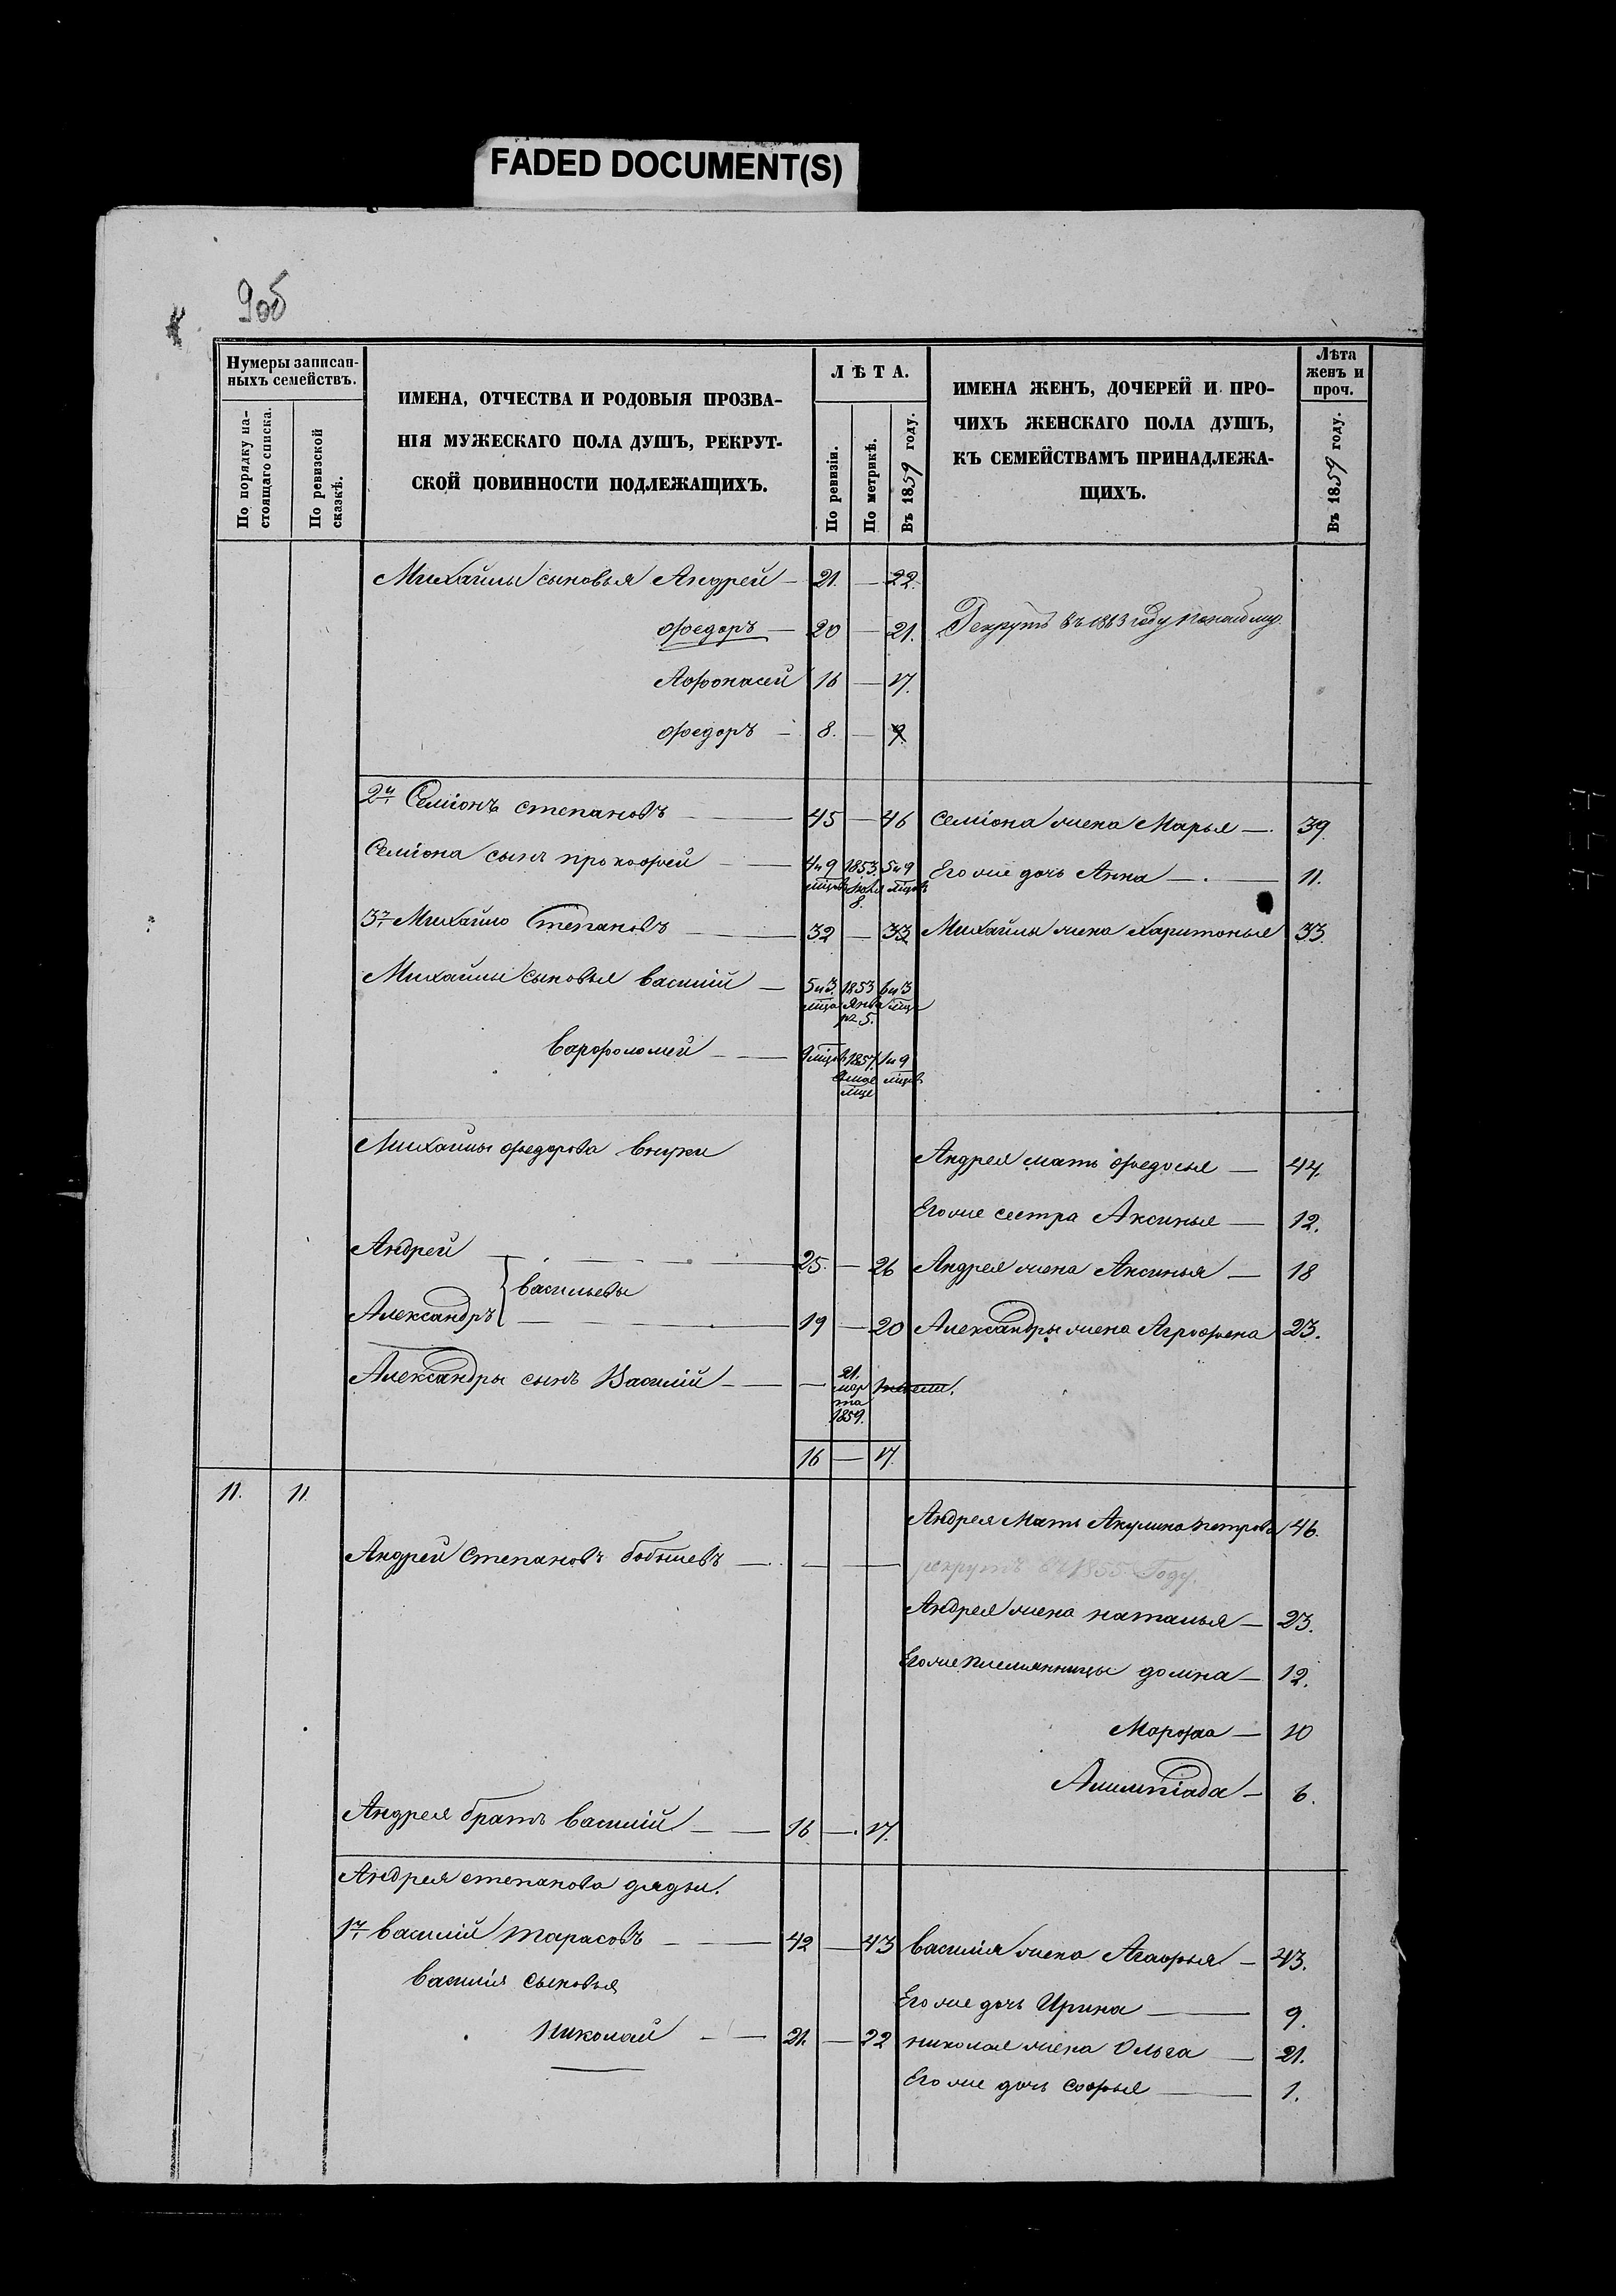 FADED DOCUMENT(S)
9об
Нумеры записан-
ныхъ семействъ.
По порядку на-
стоящаго списка.
По ревизской
сказкѣ.
ИМЕНА, ОТЧЕСТВА И РОДОВЫЯ ПРОЗВА-
НІЯ МУЖЕСКАГО ПОЛА ДУШЪ, РЕКРУТ-
СКОЙ ПОВИННОСТИ ПОДЛЕЖАЩИХЪ.
ЛѢТА.
По ревизіи.
По метрикѣ.
Въ 1859 году.
ИМЕНА ЖЕНЪ, ДОЧЕРЕЙ И ПРО-
ЧИХЪ ЖЕНСКАГО ПОЛА ДУШЪ,
КЪ СЕМЕЙСТВАМЪ ПРИНАДЛЕЖА-
ЩИХЪ.
Лѣта
женъ и
проч.
Въ 1859 году.
Михайлы сыновья Андрей — 21. — 22.
Федоръ — 20 — 21. Рекрутъ въ 1863 году
Афонасей 16 — 17.
Федоръ — 8. — 9.
2й Семіонъ степановъ — 45 — 46 Семіона жена Марья — 39.
Семіона сынъ прокофей — 4и9 1853. 5и9 Его же дочь Анна — 11.
мцовъ Іюля мцовъ
8.
3й Михайло Степановъ — 32 — 33 Михайлы жена Харитонья 33.
Михайлы сыновья василій — 5и3. 1853 6и3
мца Янва мца
ря 5.
варфоломей — 9 мцовъ 1857. 1и9
мцовъ
мце
Михайлы федорова внуки
Андрея мать федосья — 44.
Его же сестра Аксинья — 12.
Андрей — 25. — 26 Андрея жена Аксинья — 18
васильевы
Александръ — 19 — 20 Александры жена Агрофена 23.
Александры сынъ Василій — — 21.
мар
та
1859.
16 — 17.
11. 11.
Андрея Мать Акулина петрова 46.
Андрей Степановъ бобышевъ — — —
рекрутъ въ 1855 Году.
Андрея жена наталья — 23.
Его же племянницы домна — 12.
Марфа — 10
Алимпіада — 6.
Андрея братъ василій — 16 — 17.
Андрея степанова дядья.
1й василій тарасовъ — 42 — 43 василія жена Агафья — 43.
василія сыновья
Его же дочь Ирина — 9.
николай — 21. — 22 николая жена Ольга — 21.
Его же дочь софья — 1.